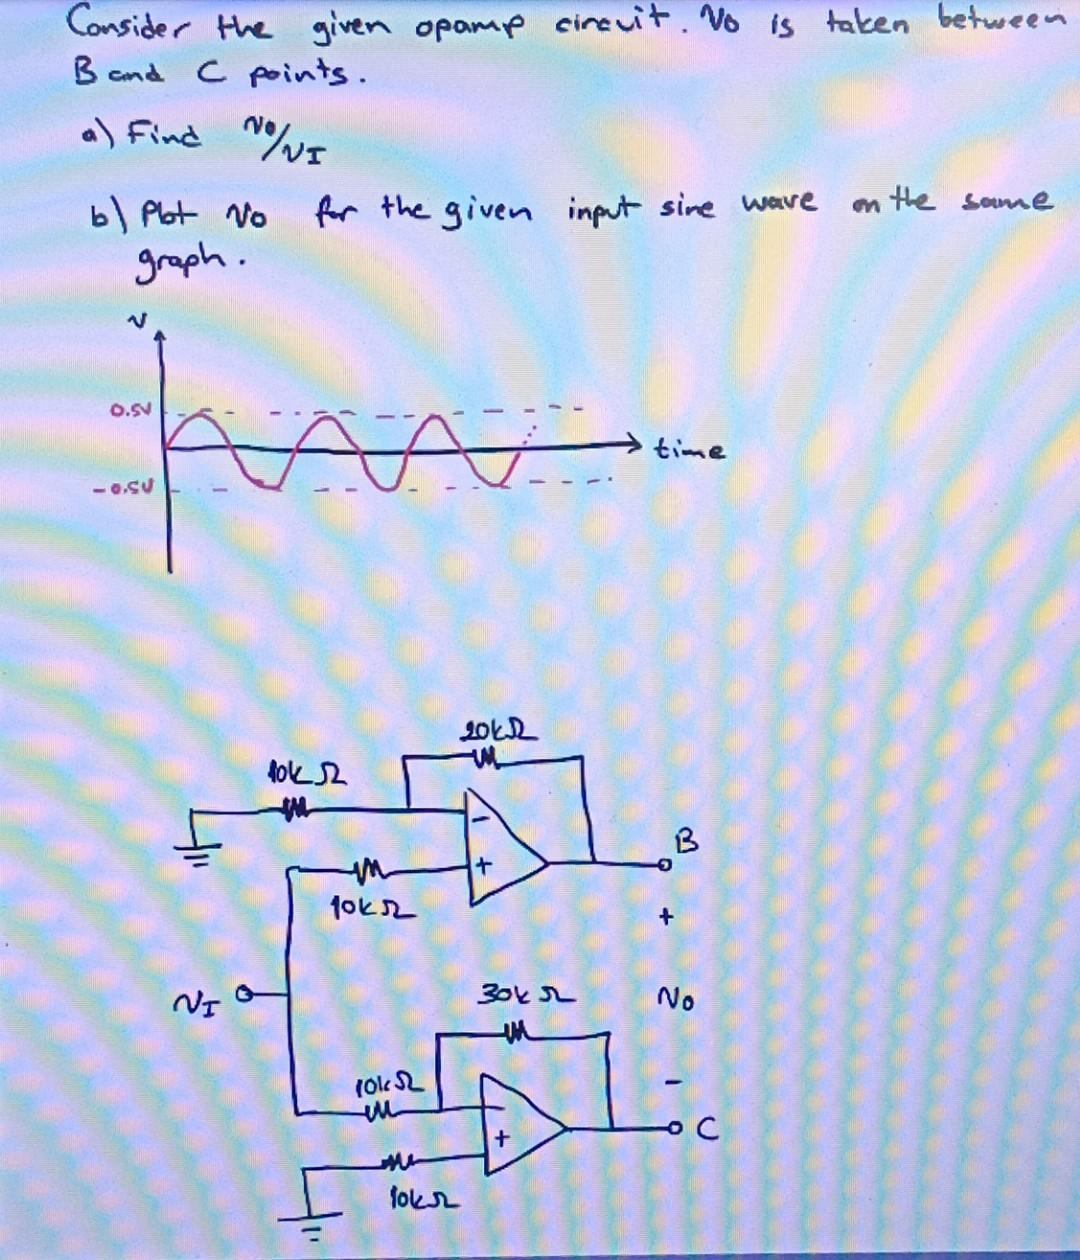 Consider the given opamp circuit. Vo is taken between
B and C points.
a) Find Vo/VI
b) Plot Vo for the given input sine wave on the same
graph.
V
0.5V
-0.5V
time
20kΩ
10kΩ
-
+
B
10kΩ
+
VI
30kΩ
Vo
10kΩ
-
-
+
C
10kΩ